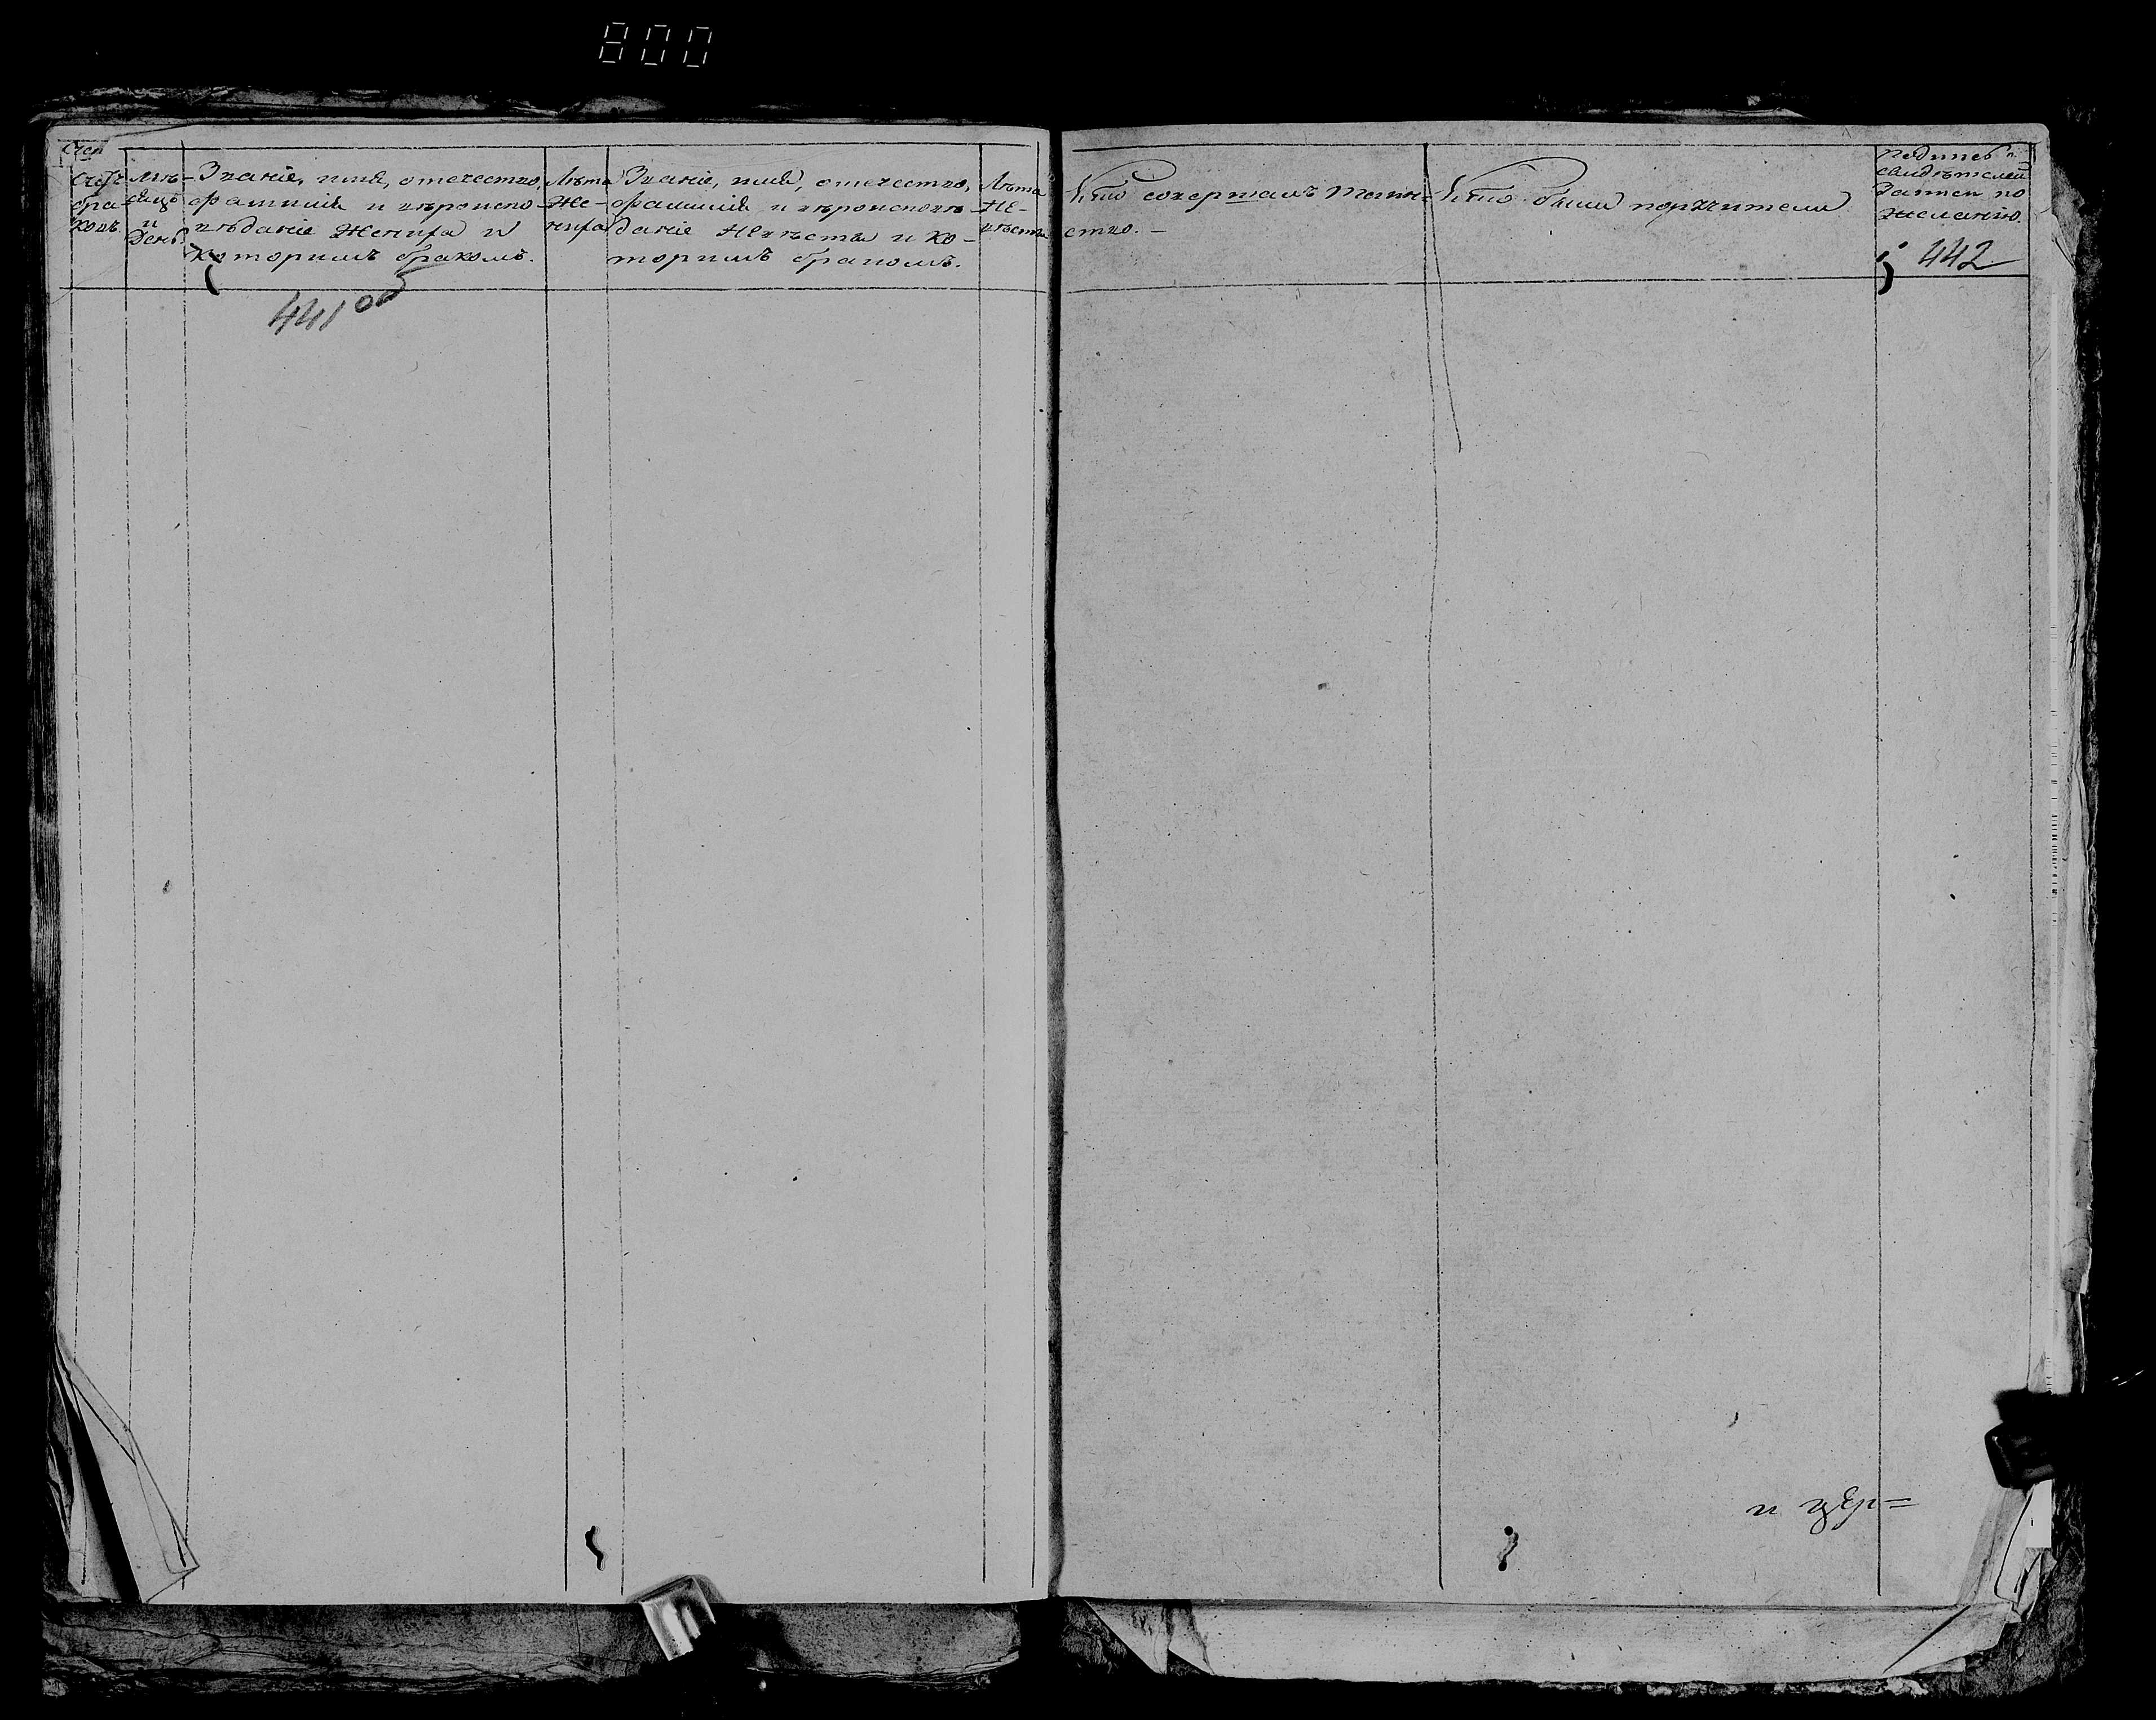 800
Счетъ
бра-
ковъ
Мѣ-
сяцъ
и
день
Званіе, имя, отечество,
фамилія и вѣроиспо-
вѣданіе жениха и
которымъ бракомъ.
441 об
Лѣта
же-
ниха
Званіе, имя, отечество,
фамилія и вѣроисповѣ-
даніе невѣсты и ко-
торымъ бракомъ.
Лѣта
не-
вѣсты
Кто совершалъ таин-
ство.-
Кто были поручители
свидѣтелей
по
желанію.
442